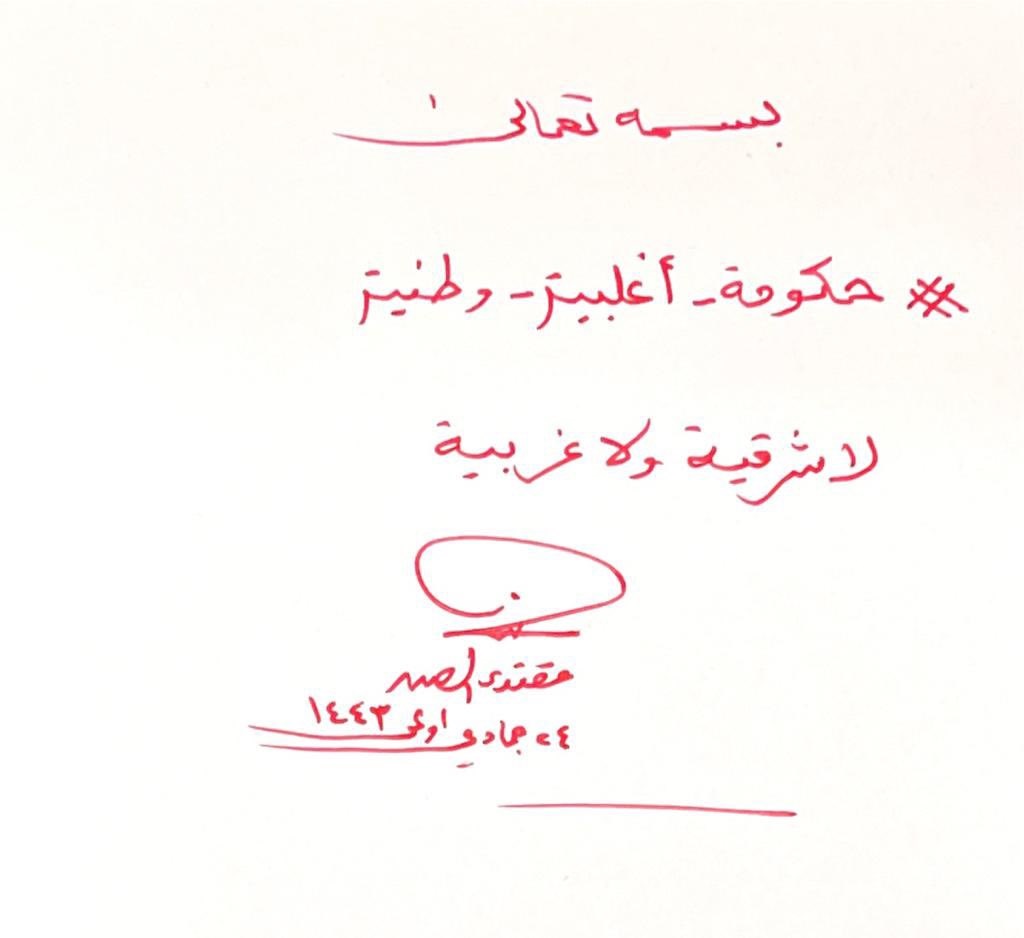 بسمه تعالى
# حكومة_أغلبية_وطنية
لا شرقية ولا غربية
مقتدى الصدر
٢٤ جمادي اولى ١٤٤٣